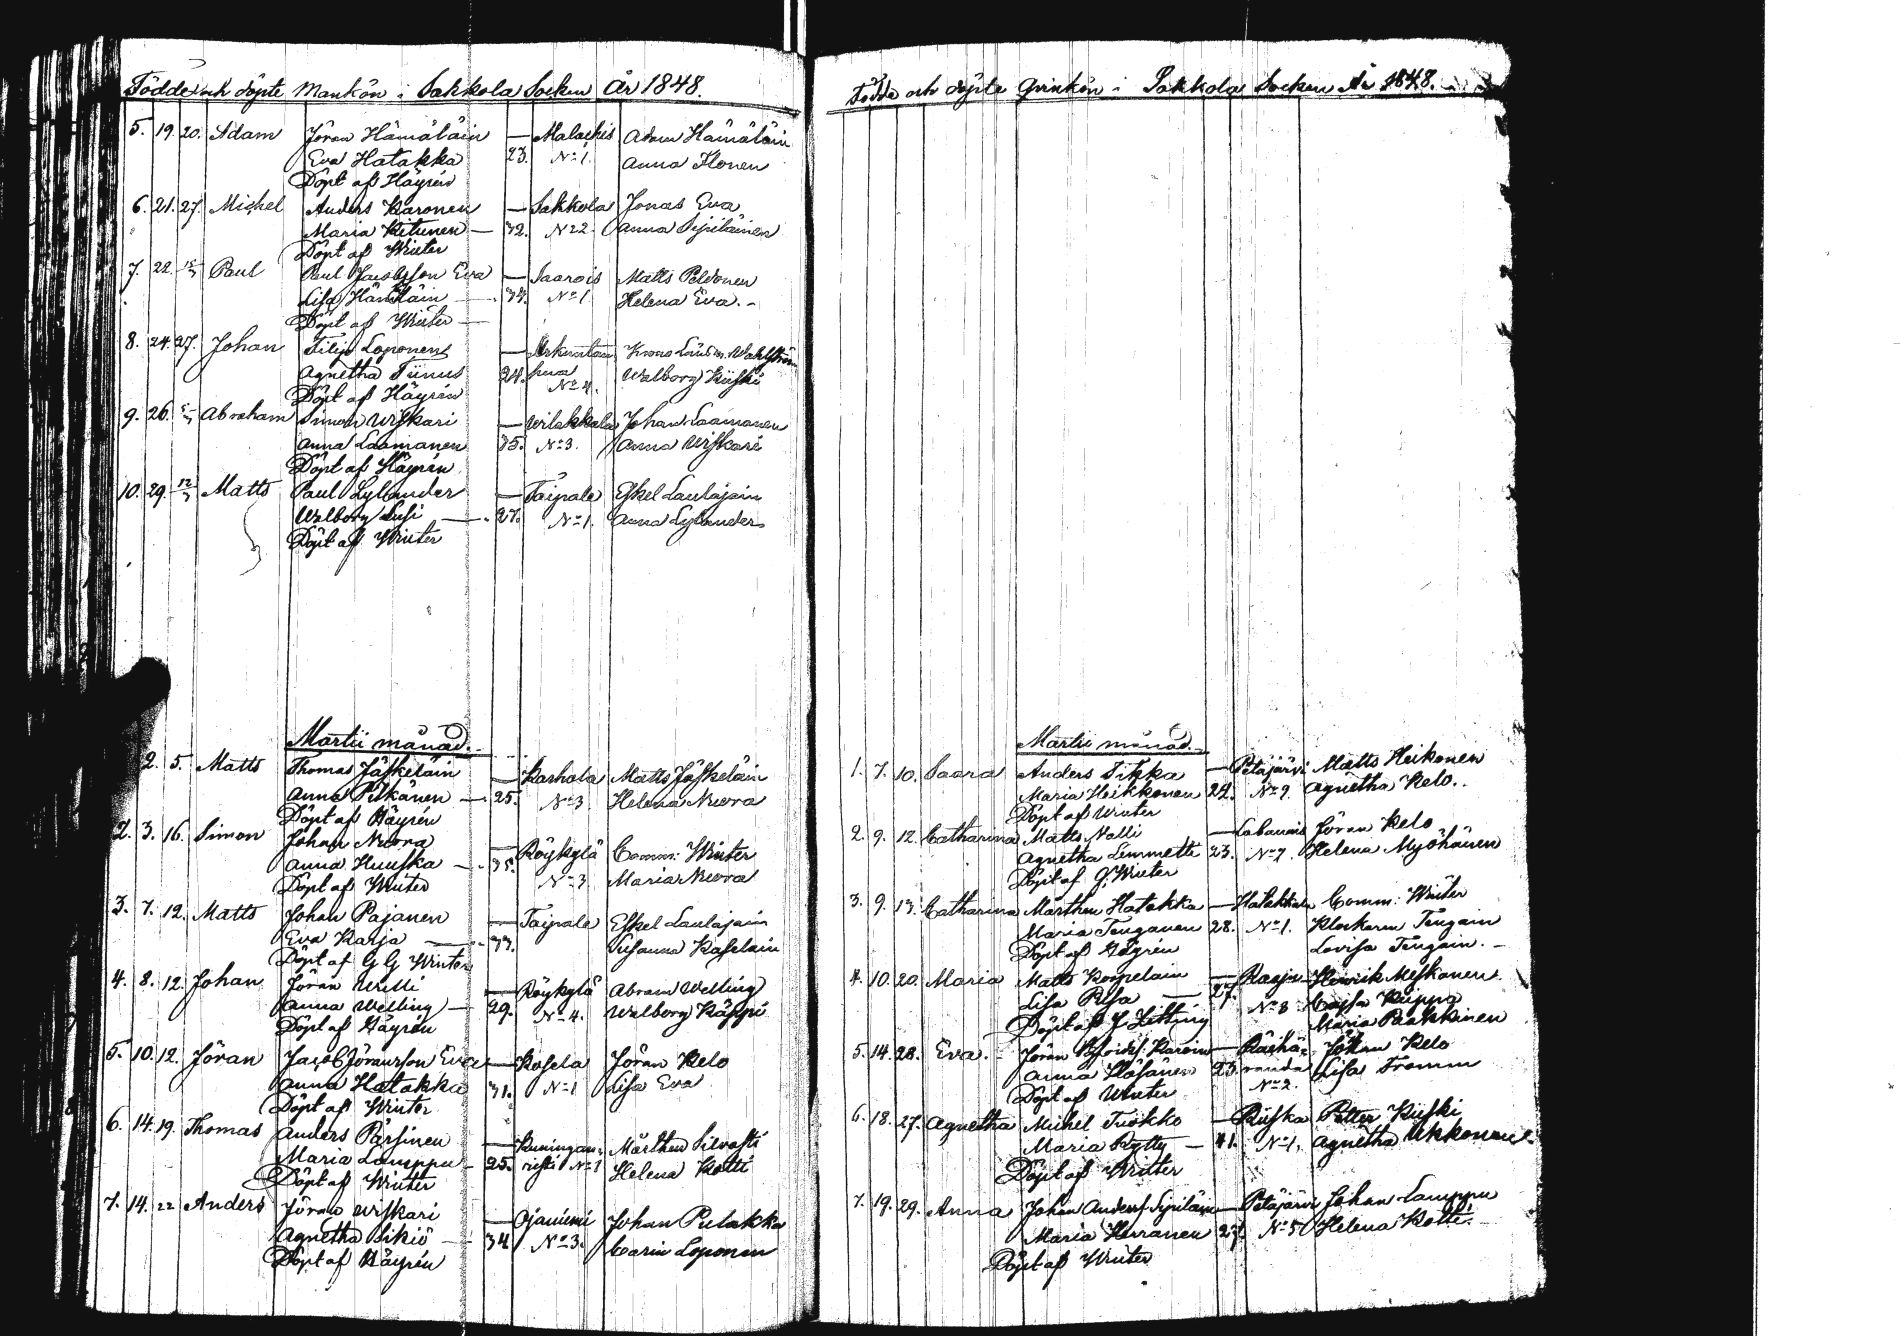 Födde och döpte Mankön i Sakkola Socken År 1848.
5. 19. 20. Adam Jöran Hämäläin — Malachis Adam Hämäläin
Eva Hatakka 23. No 1. Anna Ilonen
Döpt af Häyrén
6. 21. 27. Michel Anders Karonen — Sakkola Jonas Eva
Maria Kitunen — 32. No 22. Anna Sipiläinen
Döpt af Winter
7. 22. Paul Paul Jacobsson Eva — Saarois Matts Peldonen
Lisa Hämäläin — 34. No 1 Helena Eva. -
Döpt af Winter —
8. 24. 27. Johan Filip Loponen — Krono Länsm. Wahlström
Agnetha Tiinus 24. No 4. Walborg Kiiski
Döpt af Häyrén
9. 26. Abraham Simon Wiskari — Wilakkala Johan Laamanen
Anna Laamanen 35. No 3. Anna Wiskari
Döpt af Häyrén
10. 29. 12/3 Matts Paul Lylander — Taipale Eskel Laulajain
Walborg Susi — 27. No 1. Anna Lylander
Döpt af Winter
Martii månad.
2. 5. Matts Thomas Jäskeläin — Karhola Matts Jäskeläin
Anna Pitkänen — 25. No 3. Helena Nuora
Döpt af Häyrén
2. 3. 16. Simon Johan Nuora — Röykylä Comm: Winter
Anna Huuska — 35. No 3 Maria Nuora
Döpt af Winter
3. 7. 12. Matts Johan Pajanen — Taipale Eskel Laulajain
Eva Karja — 33. Susanna Kaselain
Döpt af G G Winter
4. 8. 12. Johan Jöran Willi — Röykylä Abram Welling
Anna Welling — 29. No 4. Walborg Käppi
Döpt af Häyrén
5. 10. 12. Jöran Jacob Jöransson Eva — Kosela Jöran Kelo
Anna Hatakka 31. No 1 Lisa Eva
Döpt af Winter
6. 14. 19. Thomas Anders Pärsinen — Kuningan- Märthen Silvasti
Maria Lamppu — 25. risti No 1 Helena Kotti
Döpt af Winter
7. 14. 22 Anders Jöran Wiskari — Ojaniemi Johan Pulakka
Agnetha Sikiö — 34 No 3. Carin Loponen
Döpt af Häyrén
Födde och döpte Qvinkön i Sakkola Socken År 1848.
Martii månad.
1. 7. 10. Saara Anders Sikka — Petäjärvi Matts Heikonen
Maria Heikkonen 24. No 9. Agnetha Kelo.
Döpt af Winter
2. 9. 12 Catharina Matts Nalli — Jöran Kelo
Agnetha Lemmetti 23. No 7. Helena Myöhänen
Döpt af G. Winter
3. 9. 13. Catharina Märthen Hatakka — Hatakkala Comm: Winter
Maria Tenganen 28. No 1. Klockaren Tengain
Döpt af Häyrén Lovisa Tengain. -
4. 10. 20. Maria Matts Korpelain — Haapa Henrik Meskanen
Lisa Risa — 27. No 3 Caysa Kuippa
Döpt af J Zitting Maria Paakkinen
5. 14. 28. Eva. Jöran Karoin — Räihä- Johan Kelo
Anna Häsänen 23. randa Lisa Fromm
Döpt af Winter No 2.
6. 18. 27. Agnetha Michel Tuokko — Riiska Petter Kiiski
Maria Rytty — 41. No 1. Agnetha Ukkonen
Döpt af Winter
7. 19. 29. Anna Johan Anderss. Sipiläin — Petäjärvi Johan Lamppu
Maria Herranen 27. No 5 Helena Kotti.
Döpt af Winter